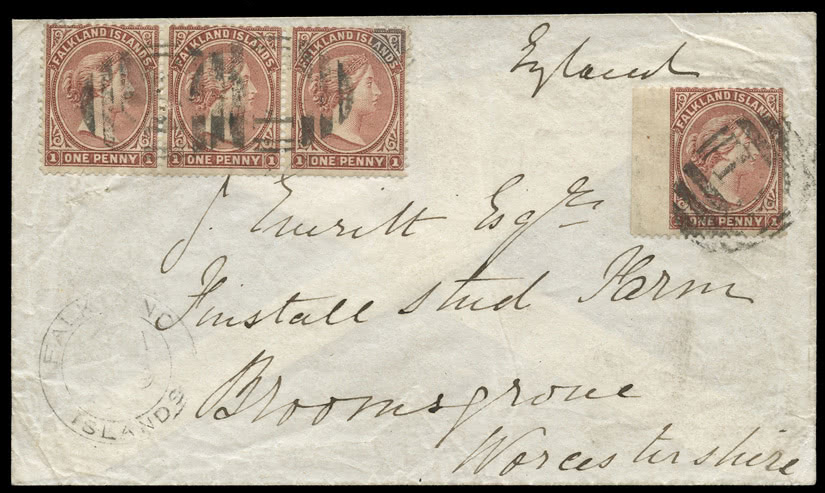 FALKLAND ISLANDS FALKLAND ISLANDS FALKLAND ISLANDS
1 ONE PENNY 1 1 ONE PENNY 1 1 ONE PENNY 1
England
FALKLAND ISLANDS
ONE PENNY 1
J. Everitt Esqre
Finstall Stud Farm
Bromsgrove
Worcestershire
FALKLAND
ISLANDS